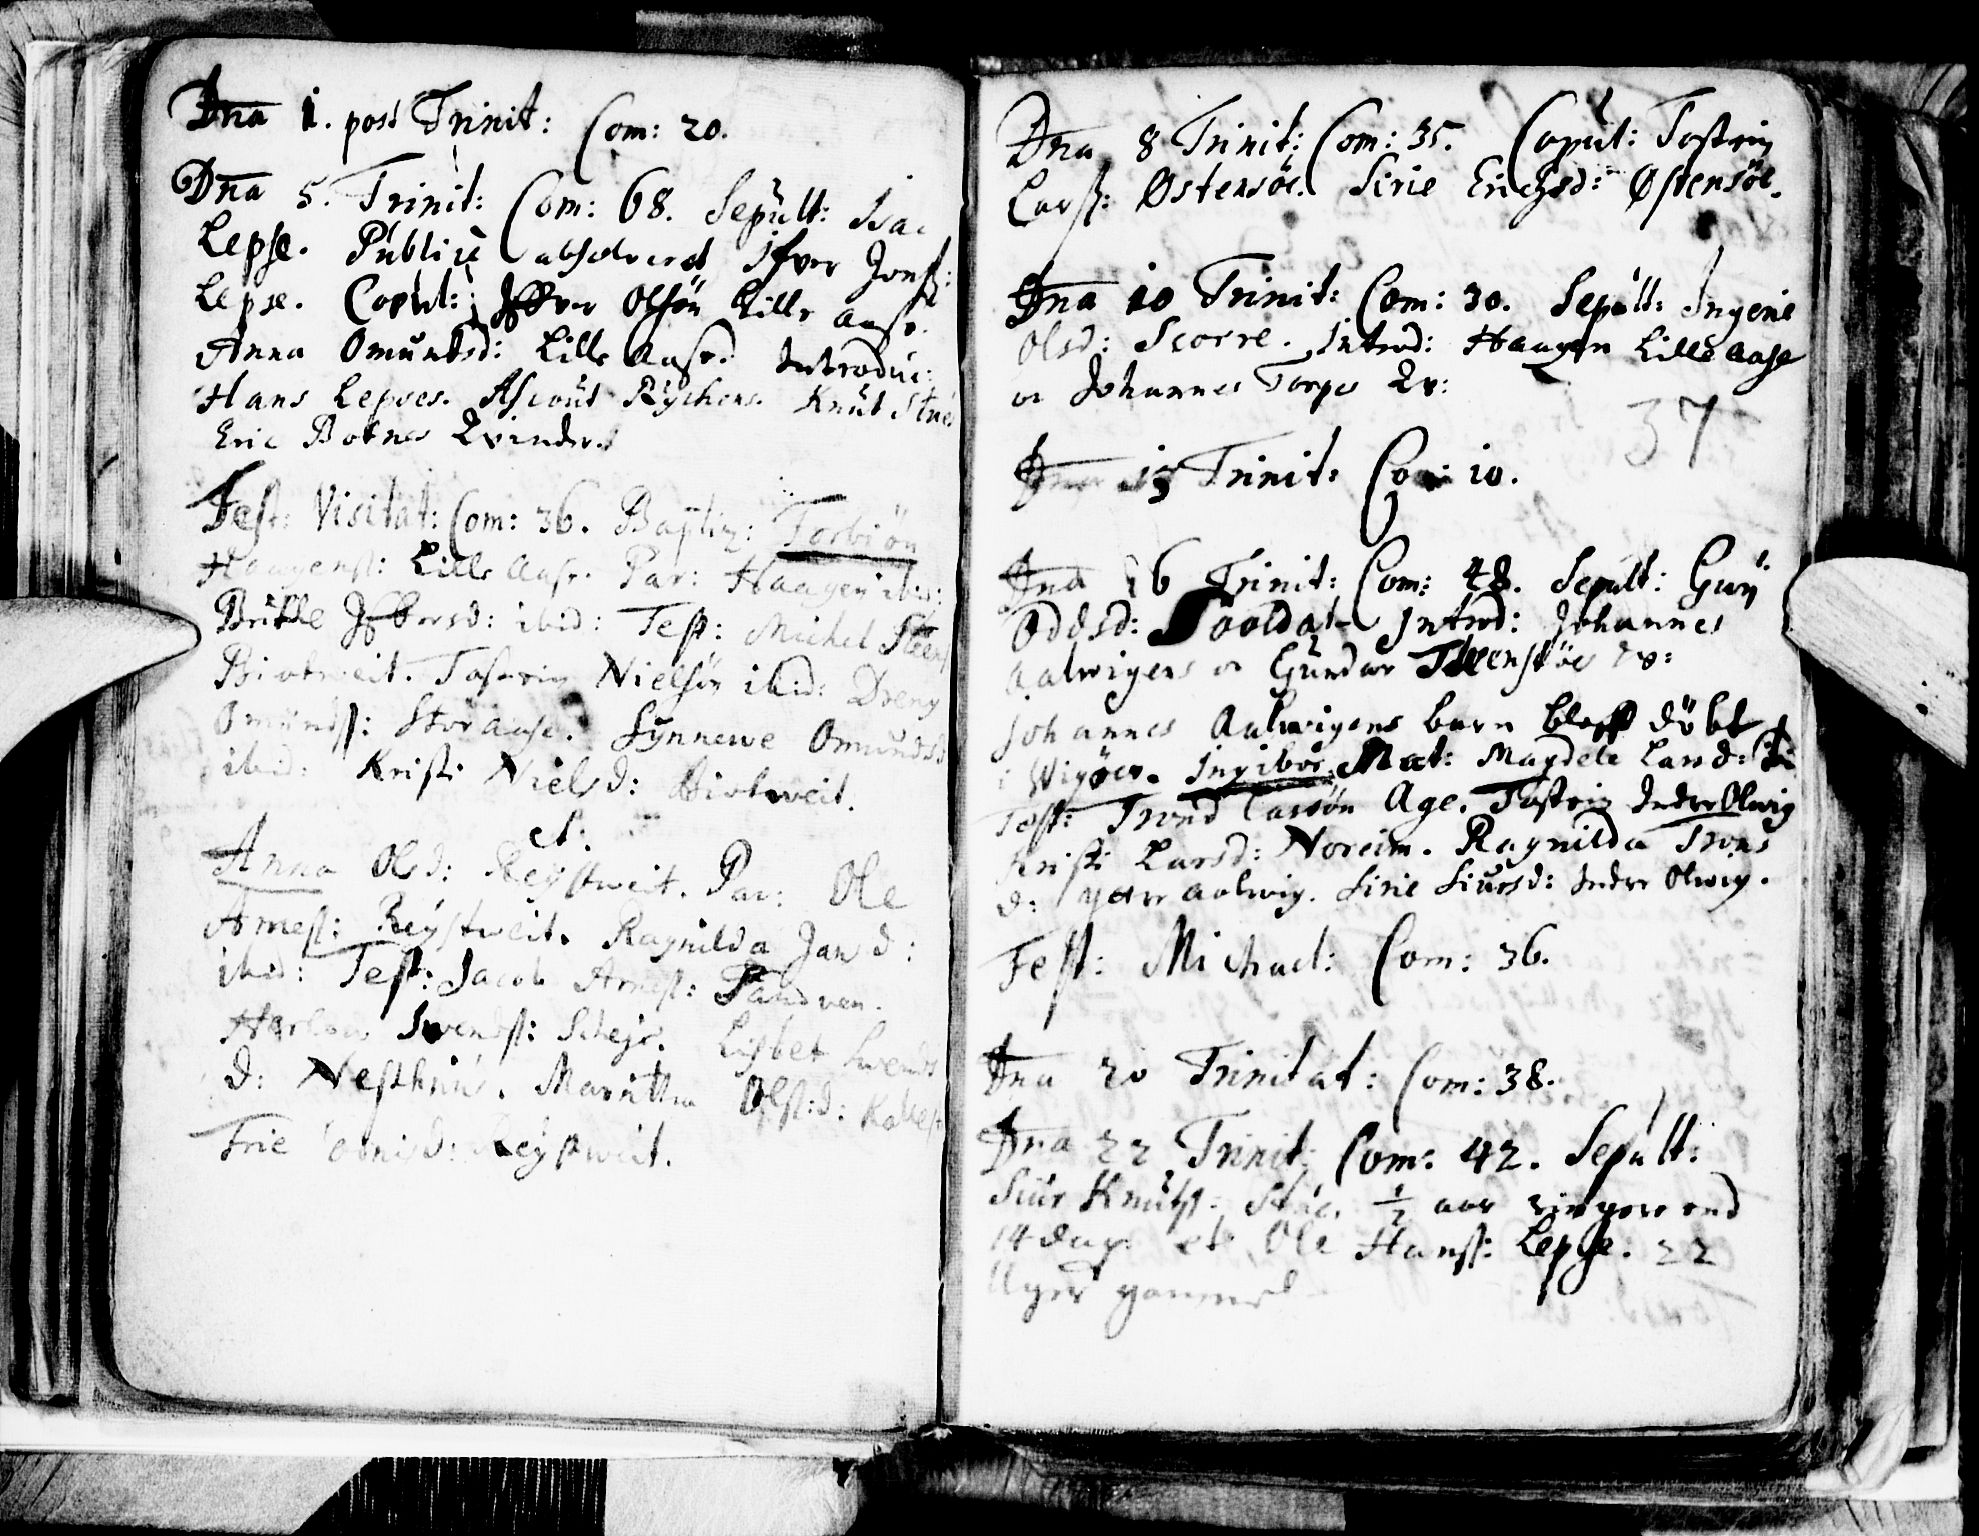 Dna 1. post Trinit: Com: 20.
Dna 5. Trinit: Com: 68. Sepult: Isac
Lepse. Publicè absolveret Ifver Jonss:
Lepse. Coput: Iffver Olsön Lille Aase.
Anna Omundsd: Lille Aase. Introduc:
Hans Lepses. Ascout Rychens. Knut Stues
Eric Botnes Qvinder.
Fest: Visitat: Com: 36. Baptiz: Torbiön
Haagenss: Lille Aase. Par: Haagen ibid:
Britte Iffversd: ibid: Test: Michel Steens
Biotveit. Tosten Nielsön ibid: Dreng
Omundss: Stor Aase. Synnewe Omundsd
ibid: Kristi Nielsd: Biotweit.
et:
Anna Olsd: Reystweit. Par: Ole
Arness: Reystweit. Ragnilda Jansd:
ibid: Test: Jacob Arness: Sandven.
Svendss: Lisbet Svends
d: Nesthuus. Maritta Olss:d:
Reystweit.
Dna 8 Trinit: Com: 35. Coput: Tostein
Larss: Østensöe. Sirie Erichsd: Østensöe.
Dna 10 Trinit: Com: 30. Sepult: Ingerie
Olsd: Scorre. Introd: Haagen Lille Aase
oc Johannes Torpes Qv:
37
Dna 15 Trinit: Com: 10.
Dna 16 Trinit: Com: 48. Sepult: Guri
Oddsd: Introd: Johannes
Aalwigens oc Gundar Qv:
Johannes Aalwigens barn bleff döbt
i Wigöer. Ingibor. Mat: Magdele Larsd: ibi
Test: Trond Larsön Age. Tostein Indre Olwig
Kristi Larsd: Noreim. Ragnilda Trons
d: ytre Aalwig. Sirie Siursd: Indre Olwig.
Fest: Michael: Com: 36.
Dna 20 Trinitat: Com: 38.
Dna 22 Trinit: Com: 42. Sepult:
Siur Knutss: Stue. 1/2 aar ringere end
14 dage et Ole Hanss: Lepse. 22
Uger gammel